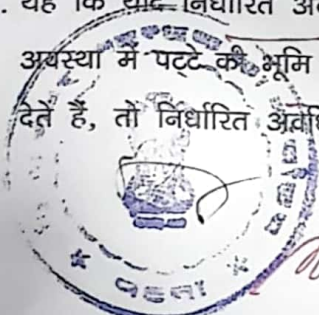 . यह कि यदि निर्धारित
अवस्था में पट्टे की भूमि
देते हैं, तो निर्धारित अवधि